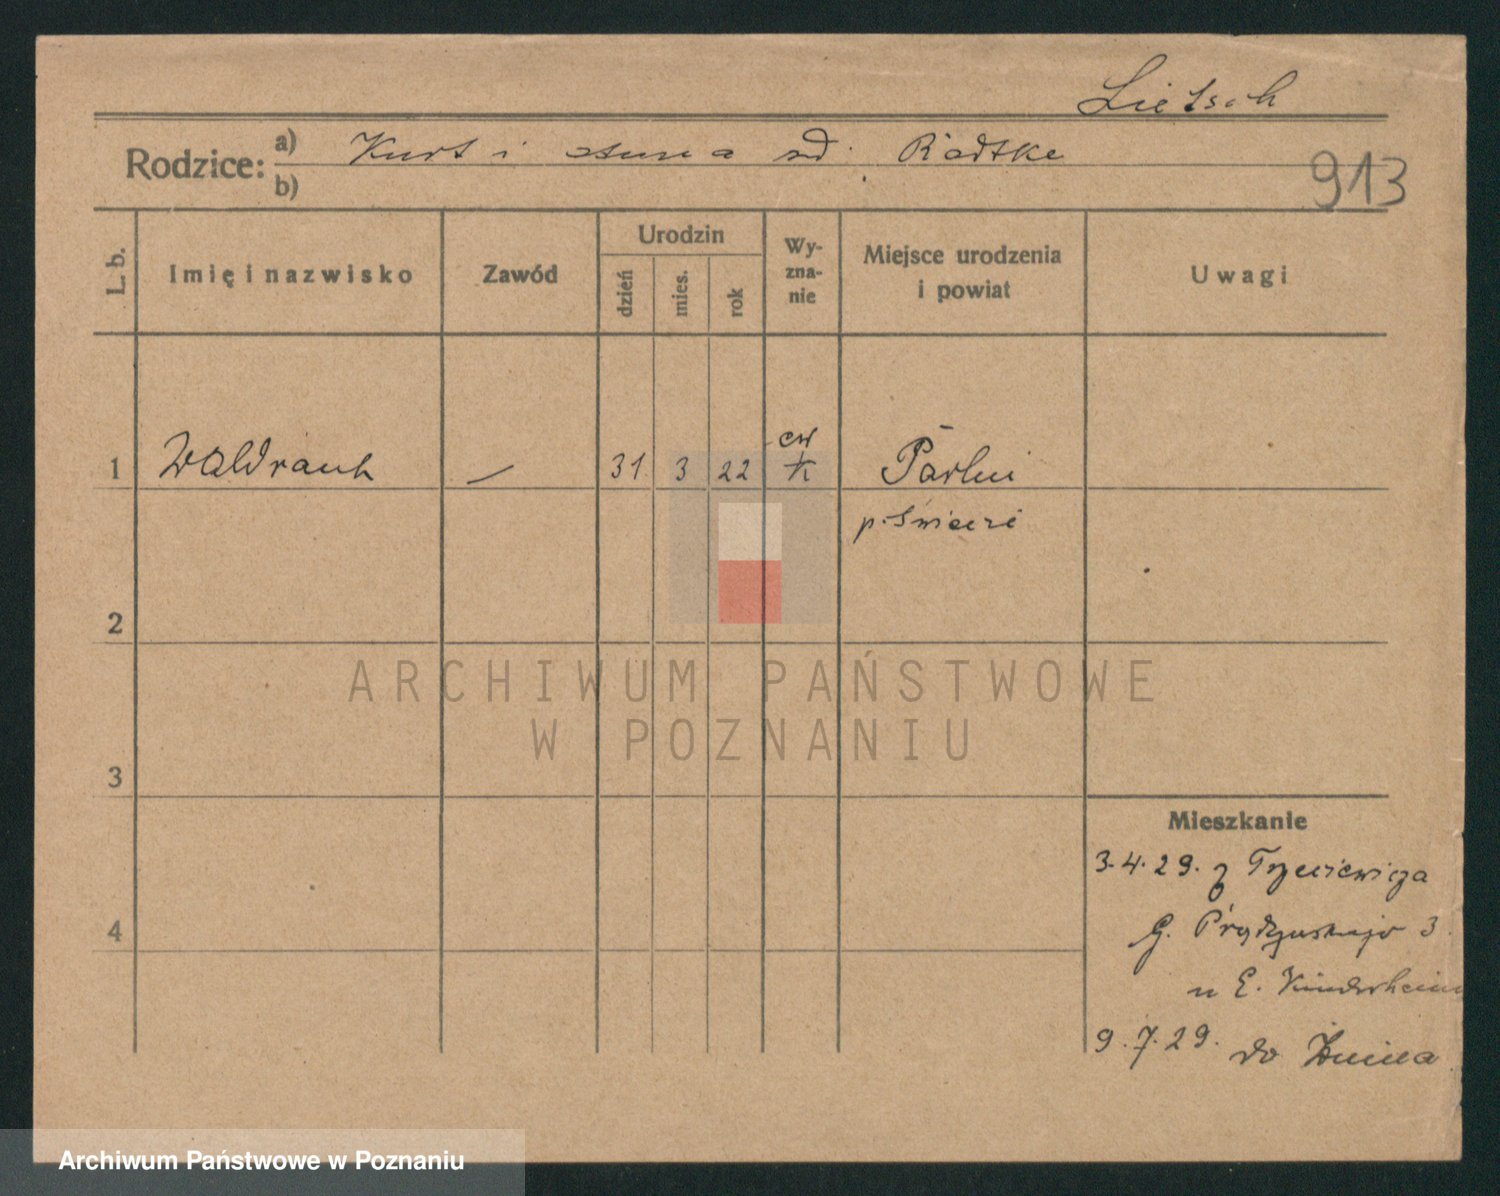 Lietsch
Rodzice: a) Kurt i Anna rd. Radtke
b)
913
L. b.
Imię i nazwisko
Zawód
Urodzin
dzień
mies.
rok
Wy-
zna-
nie
Miejsce urodzenia
i powiat
Uwagi
ew
1 Waldraut — 31 3 22 k Parlin
p. Świecie
2
3
4
Mieszkanie
3.4.29. z Trzeciewca
G. 3
u E. Kinderheim
9.7.29. do Żnina
ARCHIWUM PAŃSTWOWE
W POZNANIU
Archiwum Państwowe w Poznaniu